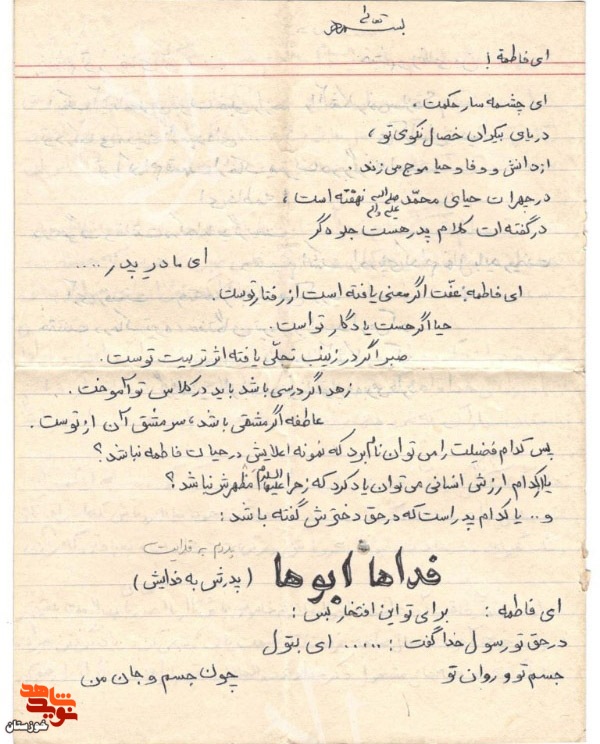 بسمه تعالی
ای فاطمه!
ای چشمه سار حکمت،
دریای بیکران خصال نکوی تو،
از دانش و وفا و حیا موج می زند
در چهرات حیای محمّد صلی الله علیه و آله نهفته است،
در گفته ات کلام پدر هست جلوه گر
ای مادر پدر ....
ای فاطمه: عفّت اگر معنی یافته است از رفتار توست.
حیا اگر هست یادگار تو است.
صبر اگر در زینب تجلّی یافته اثر تربیت توست.
زهد اگر درسی باشد باید در کلاس تو آموخت.
عاطفه اگر مشقی باشد، سرمشق آن از توست.
پس کدام فضیلت را می توان نام برد که نمونه اعلایش در حیات فاطمه نباشد؟
یا کدام ارزش انسانی می توان یاد کرد که زهرا علیها السلام مَظْهرش نباشد؟
و.. یا کدام پدر است که در حق دخترش گفته باشد:
پدرم به فدایت
فداها ابوها (پدرش به فدایش)
ای فاطمه: برای تو این افتخار بس:
در حق تو رسول خدا گفت: ..... ای بتول
جسم تو و روان تو چون جسم و جان من
نوید شاهد
خوزستان